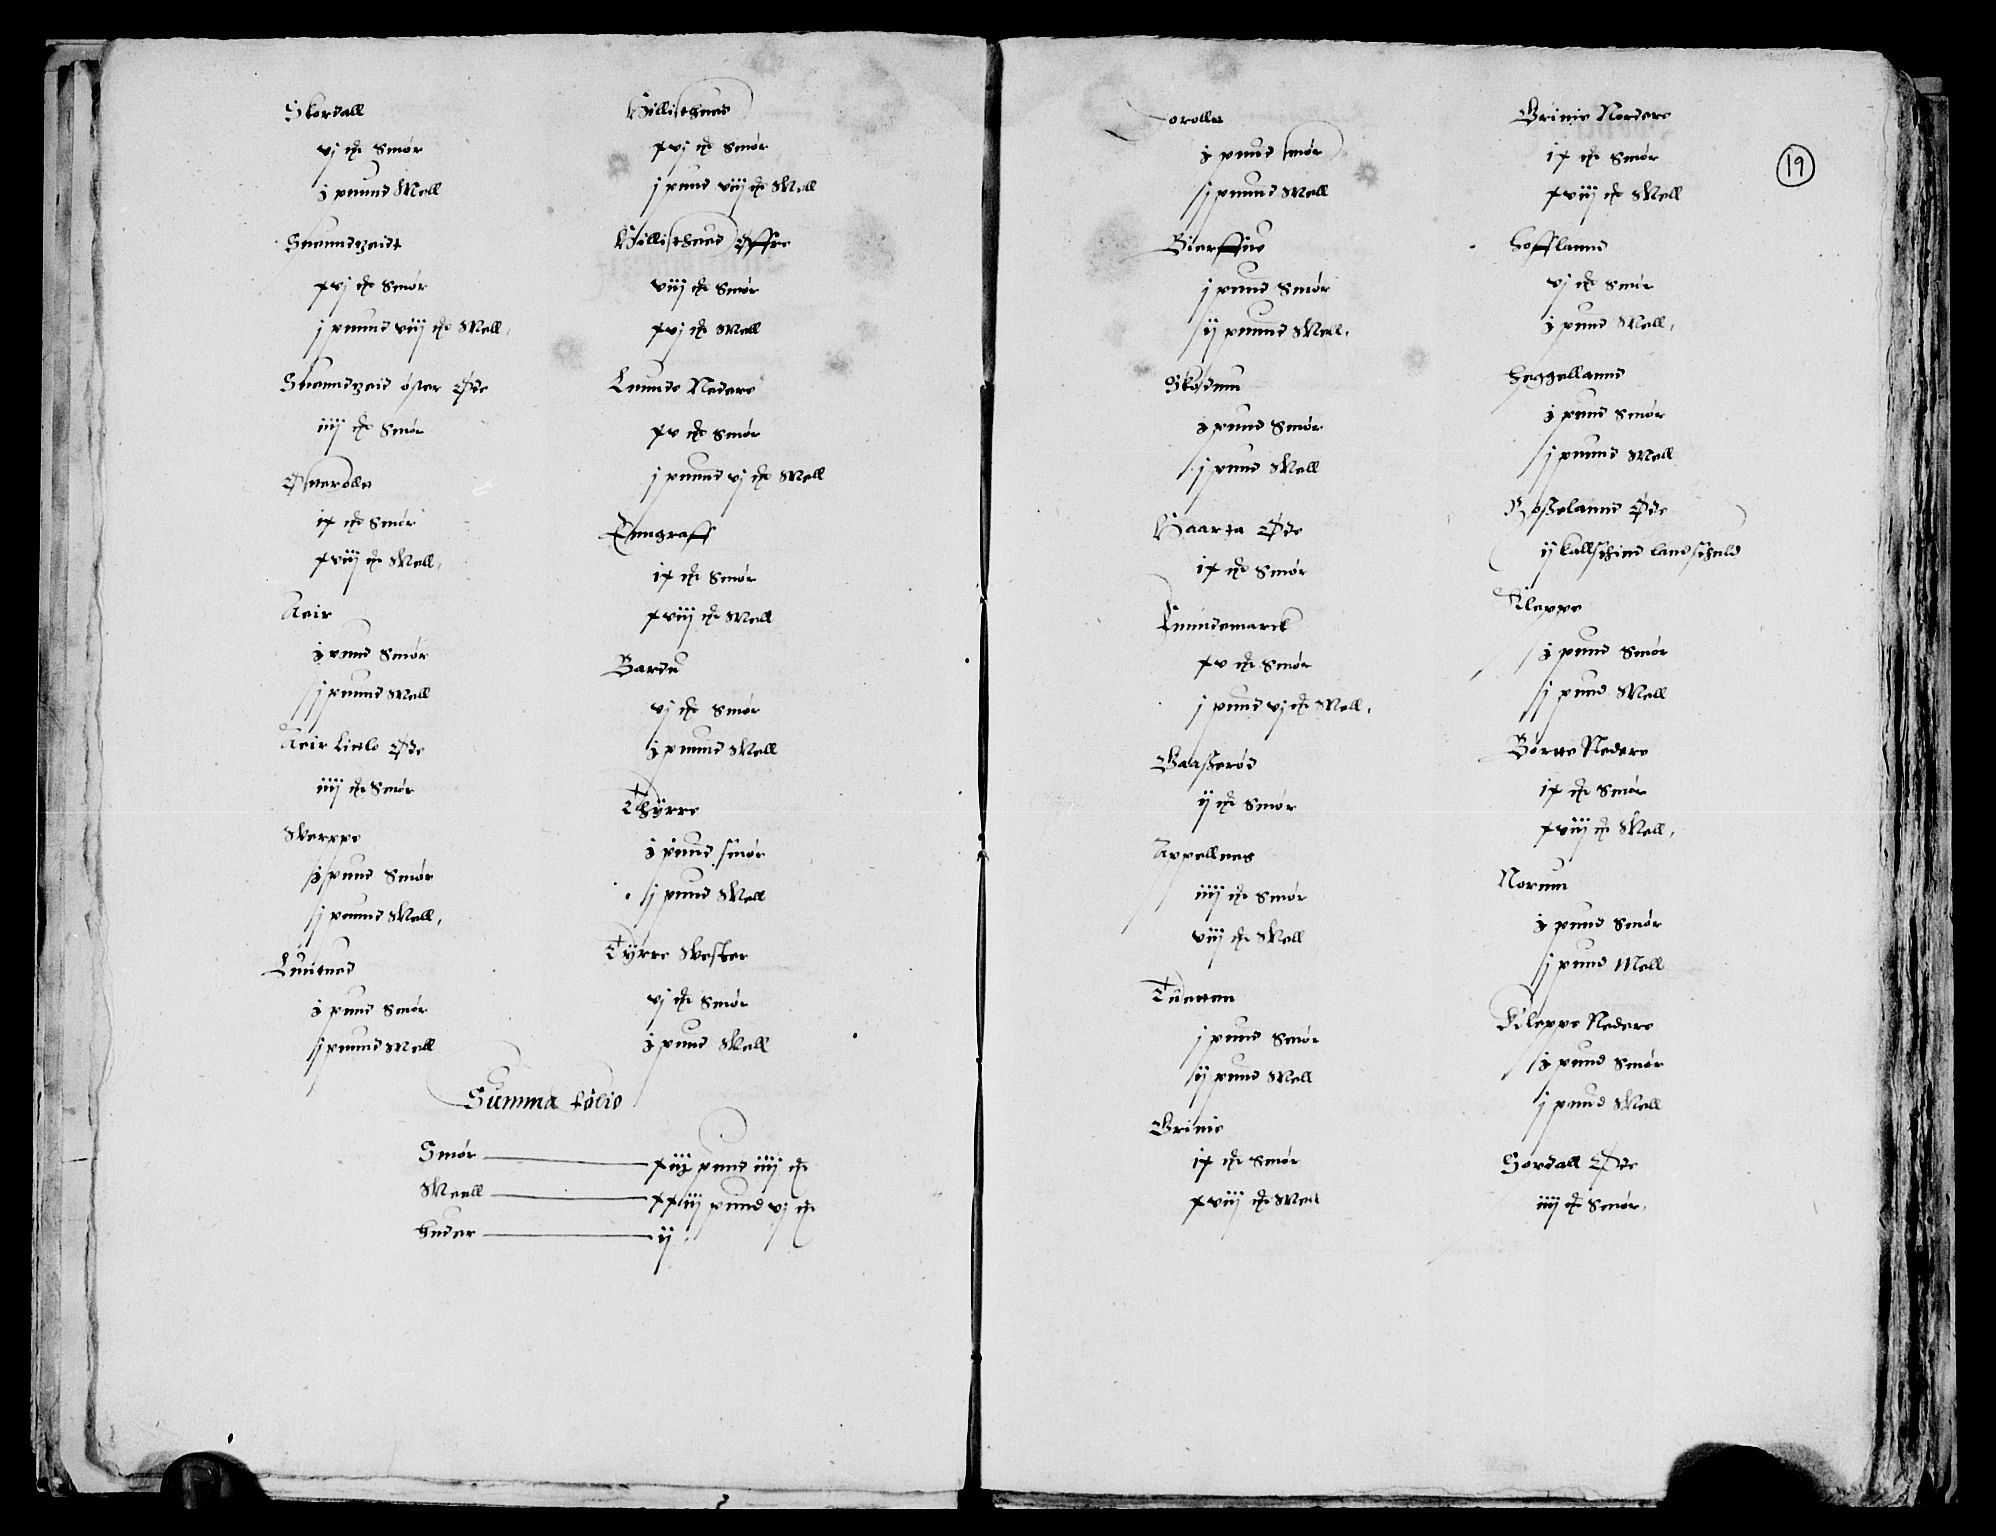 Skordall
vj ℔ Smør
j puund Mell
Suenndzeidt
xvj ℔ Smør
j puund viij ℔ Mell
Suenndzeid øster Øde
iiij ℔ Smør
Øsuerølln
ix ℔ Smør
xviij ℔ Mell
Aeir
j pund Smør
j puund Mell
Aeir Litle Øde
iiij ℔ Smør
Skerppe
j pund Smør
j puund Mell
Luitned
j pund Smør
j puund Mell
Hillisthued
xvj ℔ Smør
j pund viij ℔ Mell
Hillisthued Øffre
viij ℔ Smør
xvj ℔ Mell
Lunnde Nedere
xv ℔ Smør
j puund vj ℔ Mell
Enngraff
ix ℔ Smør
xviij ℔ Mell
Bardu
vj ℔ Smør
j puund Mell
Thyrre
j pund smør
j pund Mell
Tyrre Vester
vj ℔ Smør
j pund Mell
Summa folio
Smør xiij pund iiij ℔
Meell xxiij pund vj ℔
Huder ij
19
j pund smør
j puund Mell
j pund Smør
ij puund Mell
Skodum
j pund Smør
j pund Mell
Haarta Øde
ix ℔ Smør
Lunndemarck
xv ℔ Smør
j pund vj ℔ Mell
Baasserød
ij ℔ Smør
Appellnes
iiij ℔ Smør
viij ℔ Mell
Tuetten
j pund Smør
ij pund Mell
Brinie
ix ℔ Smør
xviij ℔ Mell
Brinie Nordere
ix ℔ Smør
xviij ℔ Mell
Hofflannd
vj ℔ Smør
j pund Mell
Heggellannd
j pund Smør
j puund Mell
Øde
ij kallschind landschuld
Kleppe
j pund Smør
j pund Mell
Børtte Nedere
ix ℔ Smør
xviij ℔ Mell
Norum
j pund Smør
j pund Mell
Kleppe Nedere
j pund Smør
j pund Mell
Hordall Øde
iiij ℔ Smør